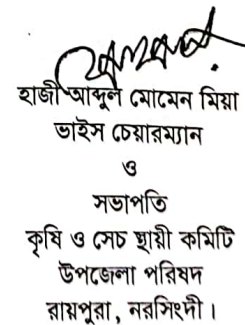 হাজী আব্দুল মোমেন মিয়া
ভাইস চেয়ারম্যান
ও
সভাপতি
কৃষি ও সেচ স্থায়ী কমিটি
উপজেলা পরিষদ
রায়পুরা, নরসিংদী।